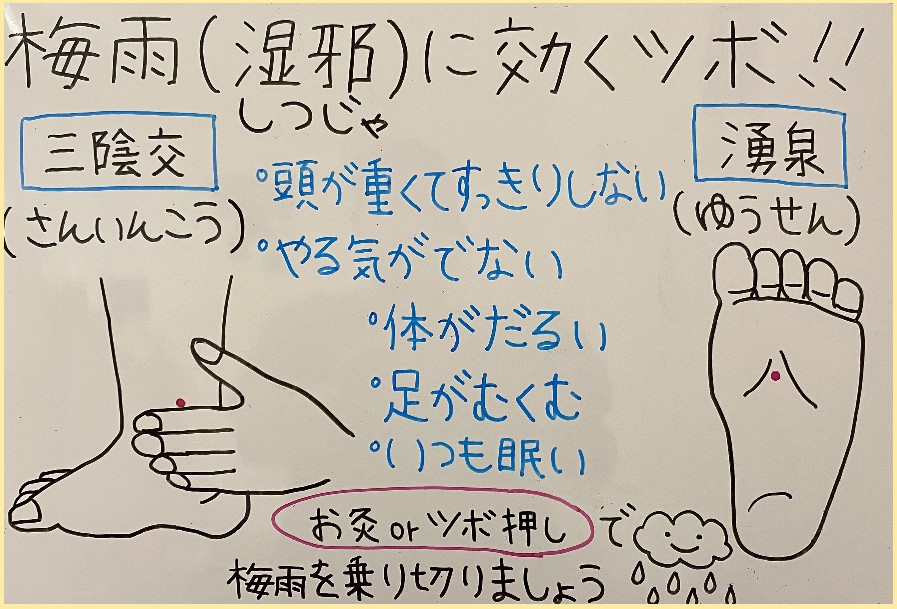 梅雨(湿邪)に効くツボ!!
しつじゃ
三陰交
(さんいんこう)
湧泉
(ゆうせん)
°頭が重くてすっきりしない
°やる気がでない
°体がだるい
°足がむくむ
°いつも眠い
お灸orツボ押しで
梅雨を乗り切りましょう